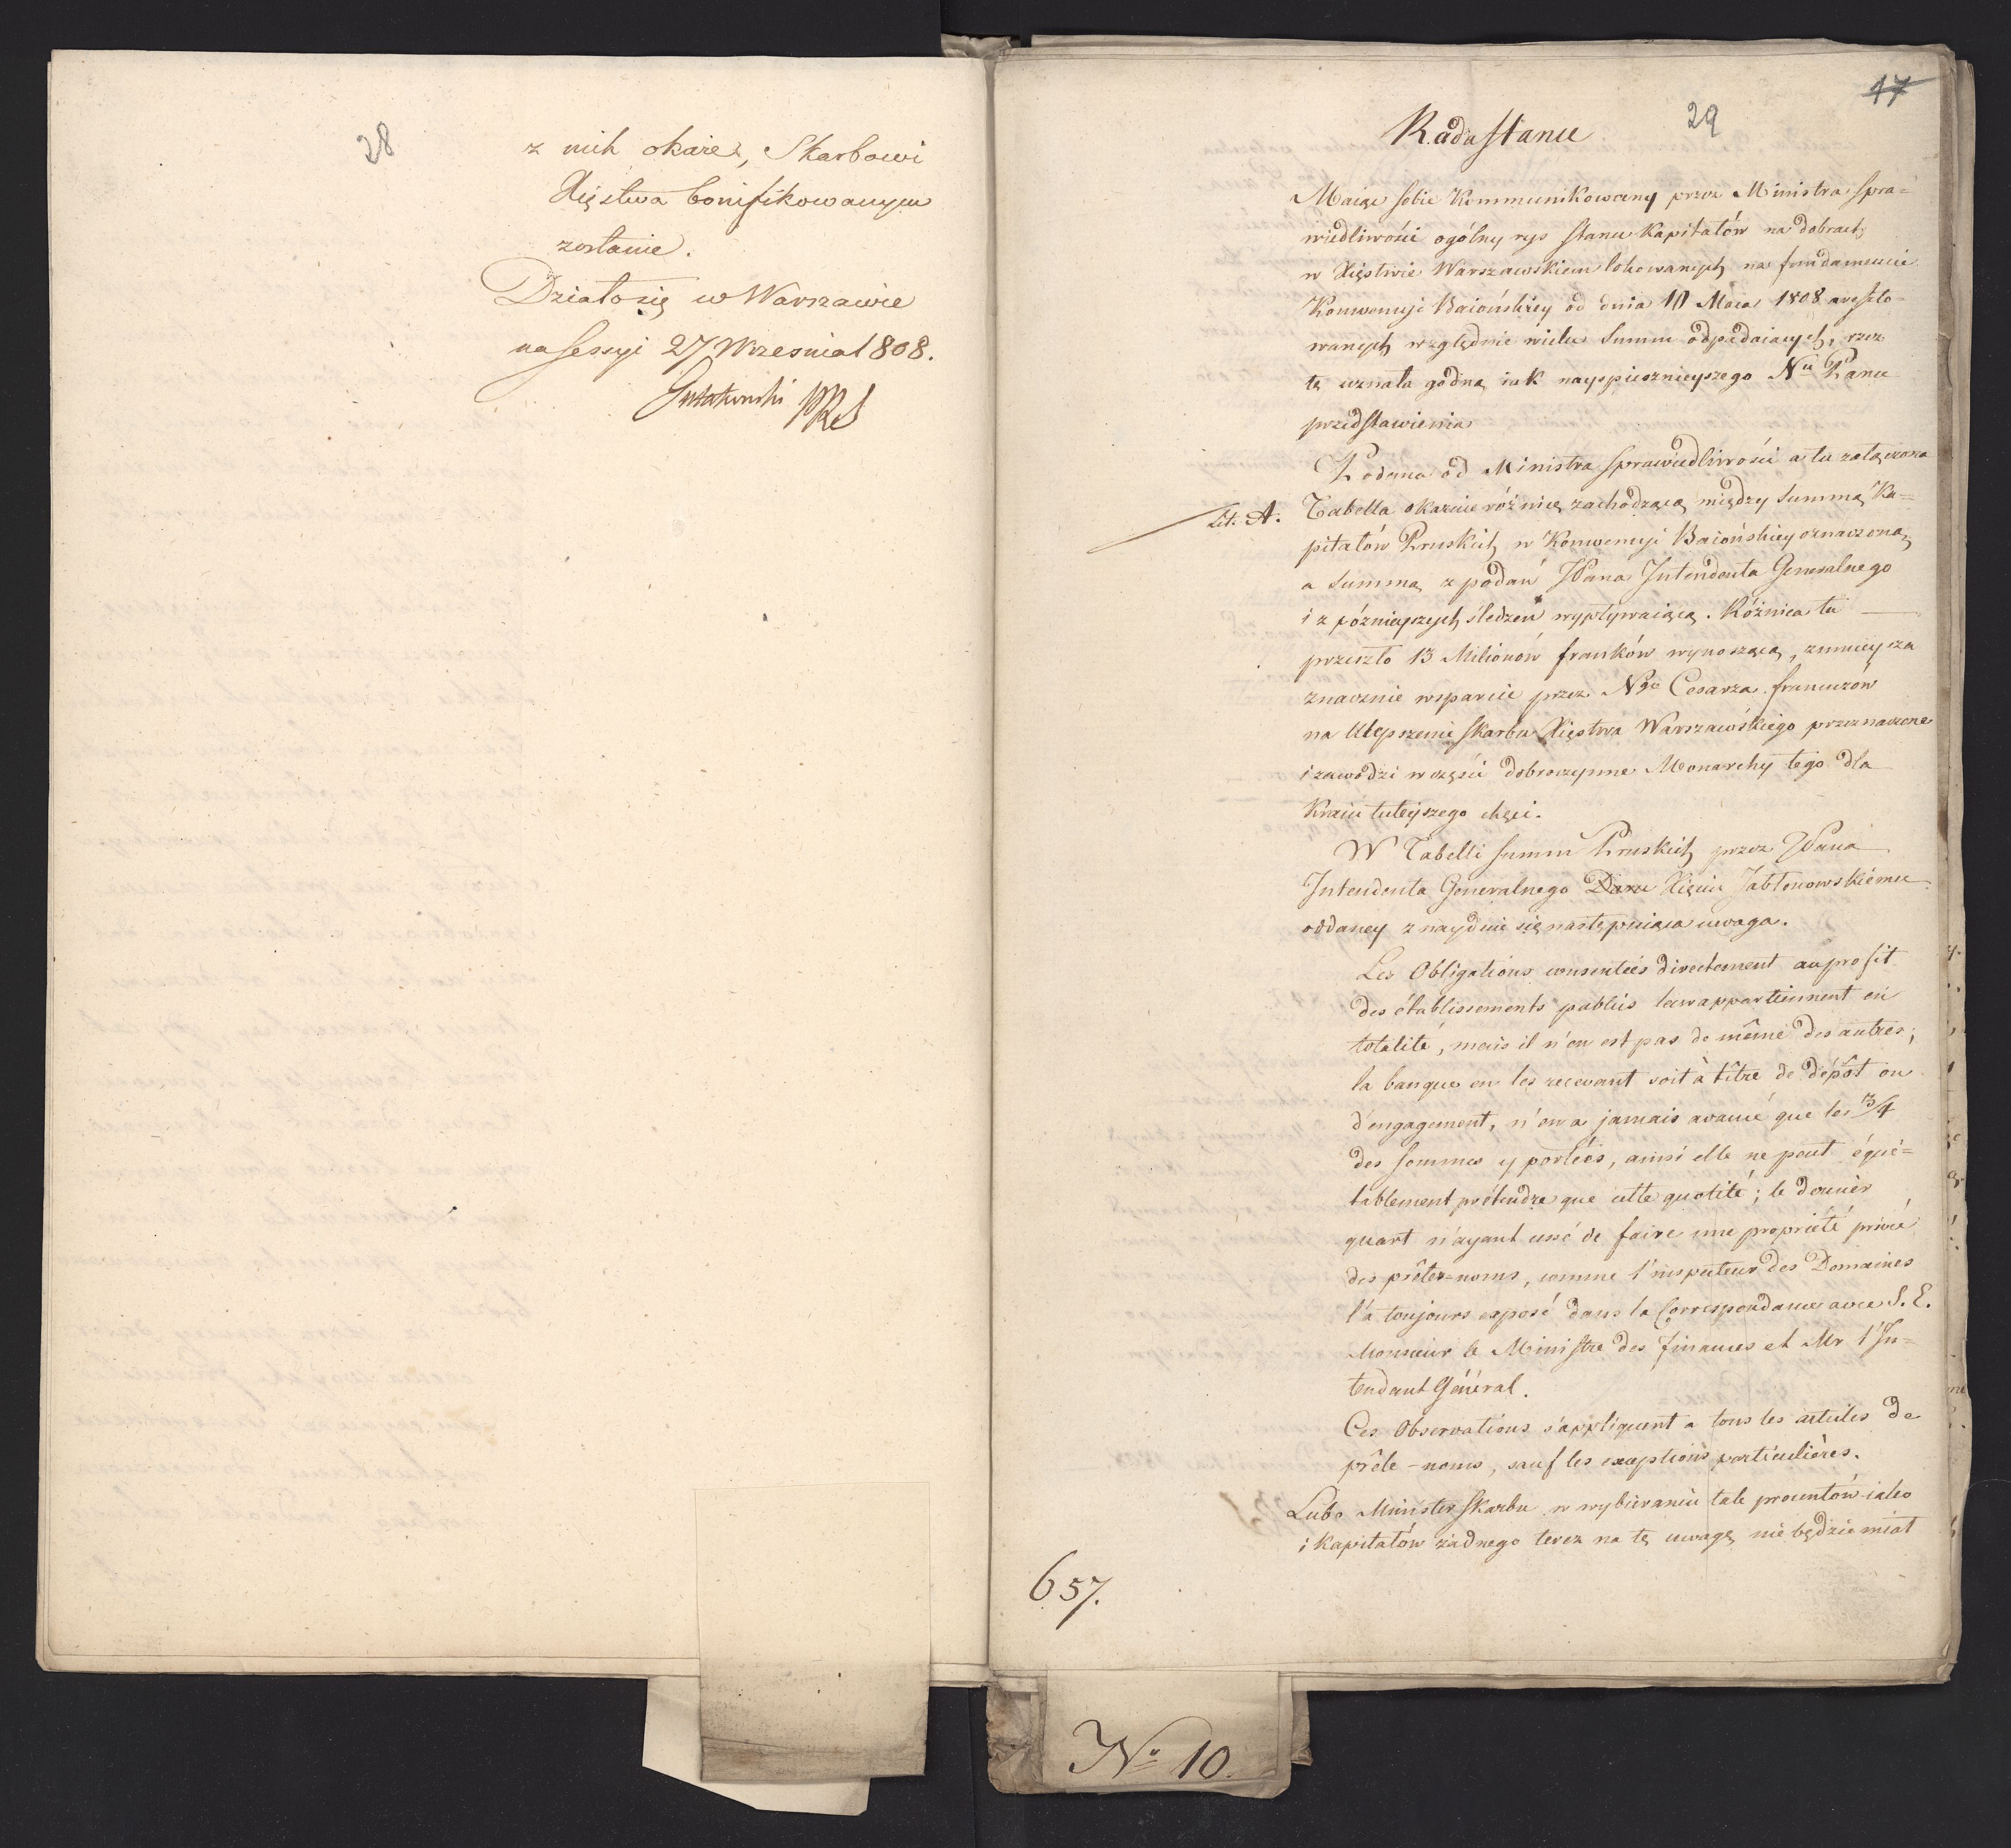 28
z nich okaże, Skarbowi
Xięstwa bonifikowanym
zostanie.
Działo się w Warszawie
na Sessyi 27 Wrzesnia 1808.
17
29
Rada Stanu
Maiąc sobie Kommunikowany przez Ministra Spra=
wiedliwości ogólny rys stanu Kapitałów na dobrach
w Xięstwie Warszawskiem lokowanych na fundamencie
Konwencyi Baiońskiey od dnia 10 Maia 1808 areszto=
wanych względnie wielu Summ odpadaiących, rzecz
tę uznała godną iak nayspiesznieyszego Nu Panu
przedstawienia
Podana od Ministra Sprawiedliwości a tu załączona
Lit. A. Tabella okazuie różnicę zachodzącą między Summą Ka=
pitałów Pruskich w Konwencyi Baiońskiey oznaczoną,
a Summą z podań JPana Intendenta Generalnego
i z póznieyszych śledzeń wypływaiącą. Różnica tu
przeszło 13 Milionów franków wynosząca, zmnieysza
znacznie wsparcie przez Ngo Cesarza francuzów
na Ulepszenie Skarbu Xięstwa Warszawskiego przeznaczone
i zawodzi w części dobroczynne Monarchy tego dla
Kraiu tuteyszego chęci.
W Tabelli Summ Pruskich przez JPana
Intendenta Generalnego Daru Xięciu Jabłonowskiemu
oddaney znayduie się następuiąca uwaga.
Les Obligations consenties directement au profit
des établissements publics leur appartiennent en
totalité, mais il n'en est pas de même des autres;
la banque en les recevant soit à titre de dépôt ou
d'engagement, n'en a jamais avancé que les 3/4
des sommes y portées, ainsi elle ne peut équi=
tablement prétendre que cette quotité; le dernier
quart n'ayant cessé de faire une propriété privée
des prêtes=noms, comme l'inspecteur des Domaines
l'a toujours exposé dans la Correspondance avec S. E.
Monsieur le Ministre des finances et Mr l'In=
tendant Général.
Ces Observations s'appliquent a tous les articles de
prête-noms, sauf les exceptions particulières.
Lubo Minister Skarbu w wybieraniu tak procentów iako
i kapitałów żadnego teraz na tę uwagę nie będzie miał
657.
No 10.